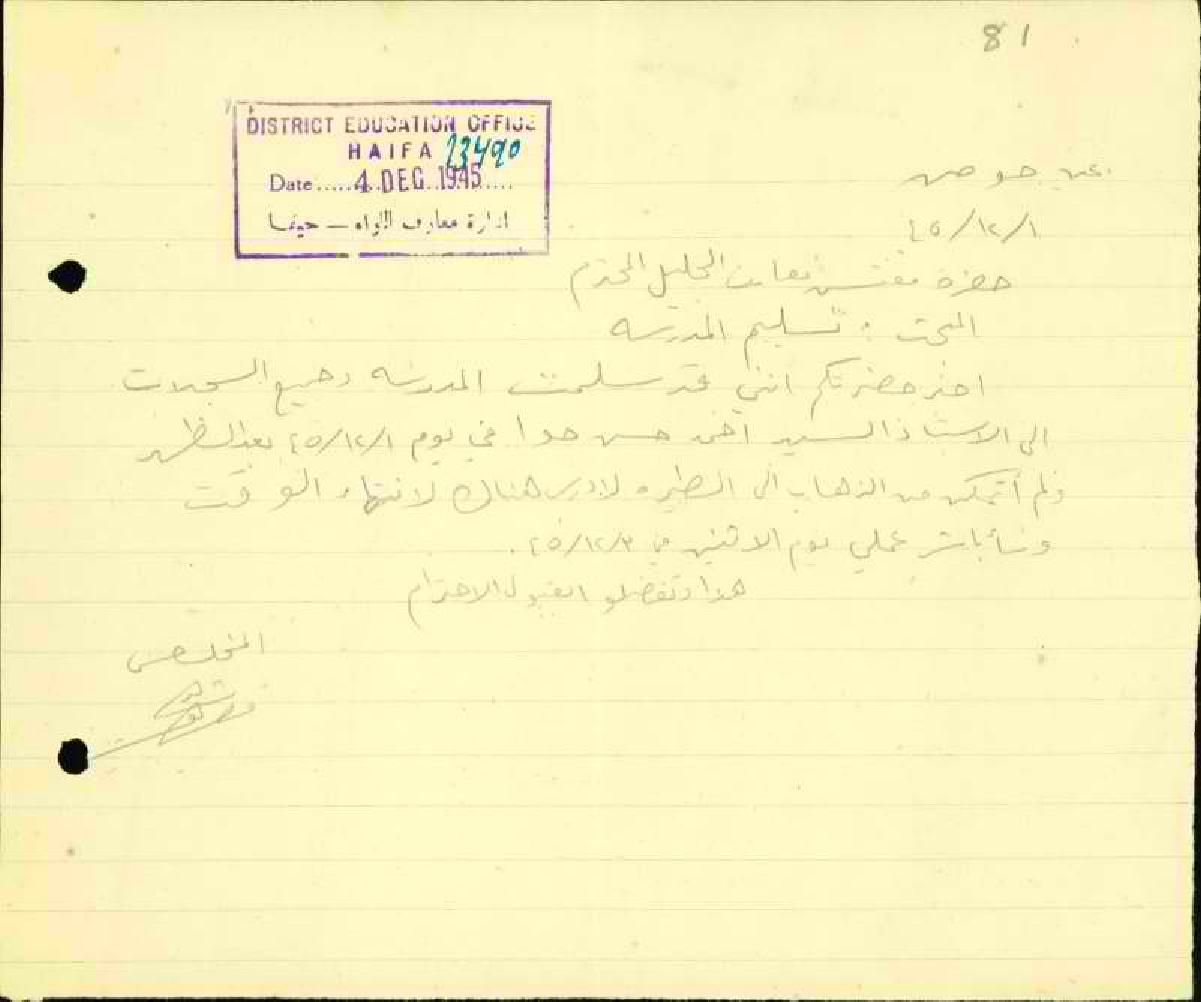 81
DISTRICT EDUCATION OFFICE
HAIFA 23490
Date ..... 4 DEC 1945 .....
ادارة معارف اللواء — حيفا
عين حوض
٤٥/١٢/١
حضرة مفتش معارف الجليل المحترم
المبحث : تسليم المدرسه
اخبر حضرتكم انني قد سلمت المدرسه وجميع السجلات
الى الاستاذ السيد احمد حسن في يوم ٤٥/١٢/١ بعد الظهر
ولم أتمكن من الذهاب الى الطيره لادرس هناك لانتهاء الوقت
وسأباشر عملي يوم الاثنين في ٤٥/١٢/٣ .
هذا وتفضلو ابقبول الاحترام
المخلص